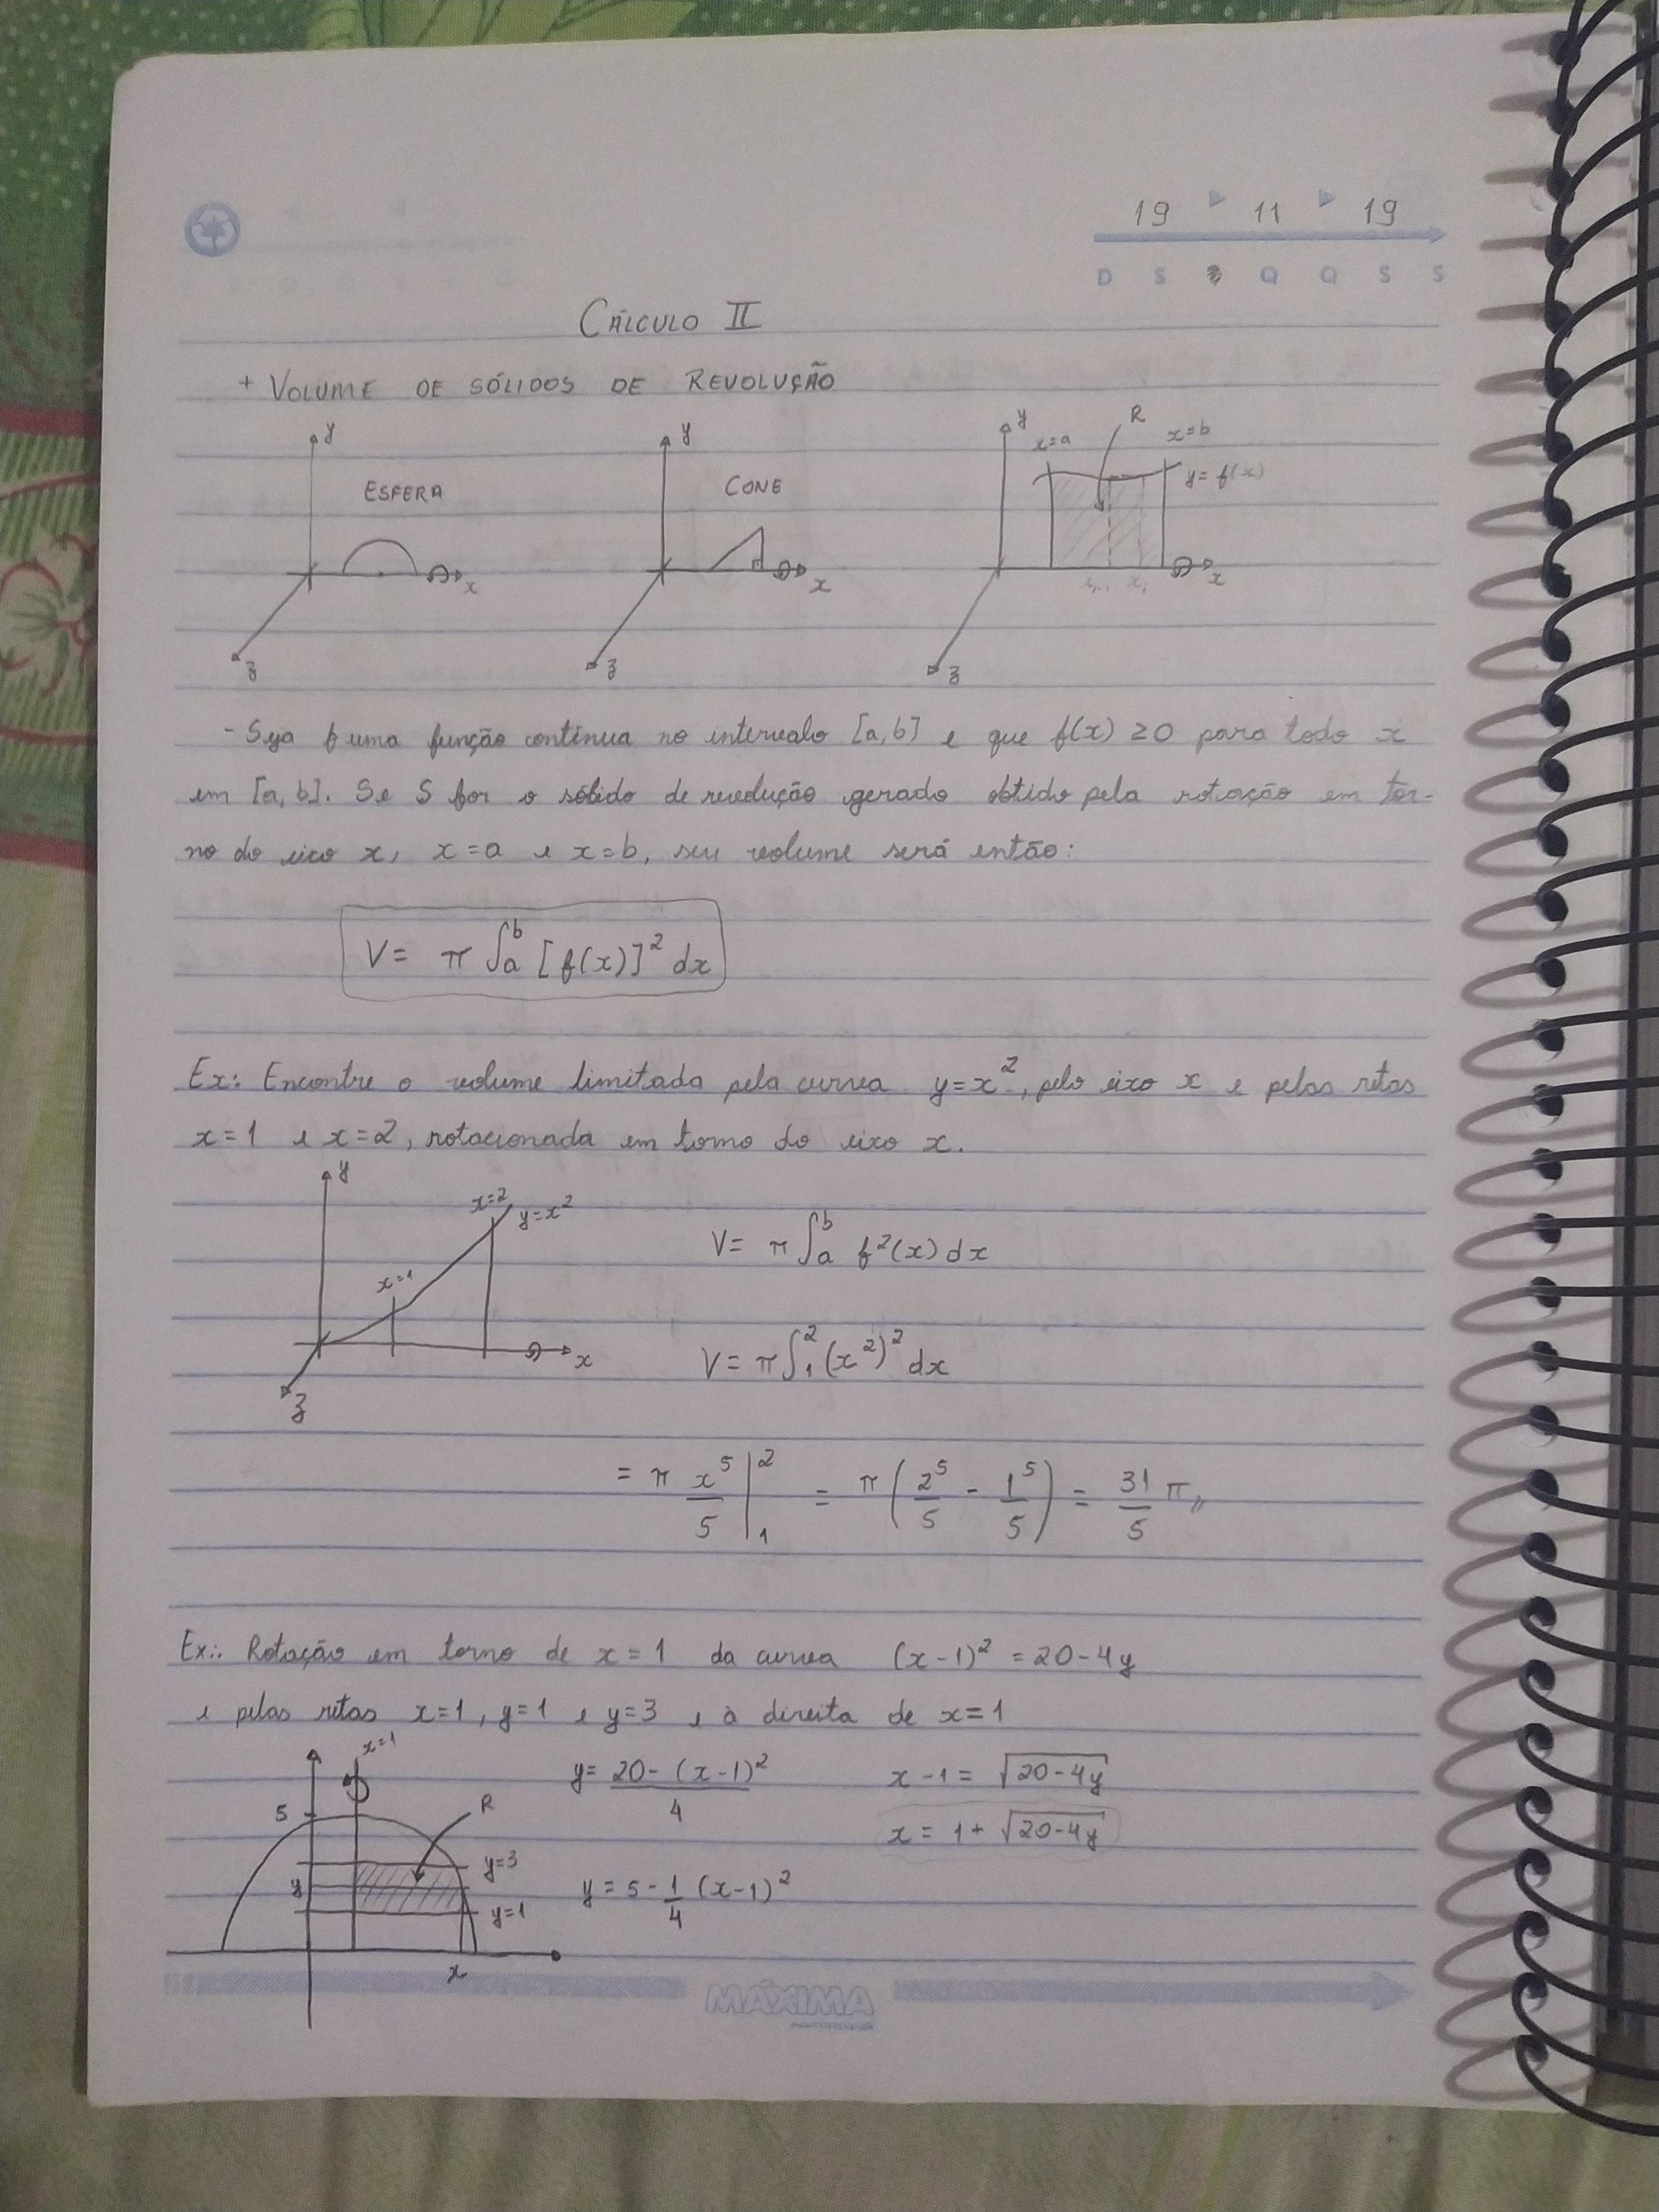 19 11 19
D S Q Q S S
CÁLCULO II
+ VOLUME DE SÓLIDOS DE REVOLUÇÃO
y ESFERA x z
y CONE x z
y x=a R x=b y=f(x) xᵢ₋₁ xᵢ x z
- Seja f uma função contínua no intervalo [a,b] e que f(x) ≥ 0 para todo x
em [a,b]. Se S for o sólido de revolução gerado obtido pela rotação em tor-
no do eixo x, x=a e x=b, seu volume será então:
V= π ∫ₐᵇ [f(x)]² dx
Ex: Encontre o volume limitada pela curva y=x², pelo eixo x e pelas retas
x=1 e x=2, rotacionada em torno do eixo x.
y x=1 x=2 y=x² x z
V= π ∫ₐᵇ f²(x) dx
V= π ∫₁² (x²)² dx
= π x⁵/5 |₁² = π (2⁵/5 - 1⁵/5) = 31/5 π,,
Ex.: Rotação em torno de x=1 da curva (x-1)² = 20-4y
e pelas retas x=1, y=1 e y=3 e à direita de x=1
x=1 5 R y=3 y y=1 x
y= 20-(x-1)²/4
x-1= √20-4y
x= 1+ √20-4y
y= 5-1/4 (x-1)²
MÁXIMA